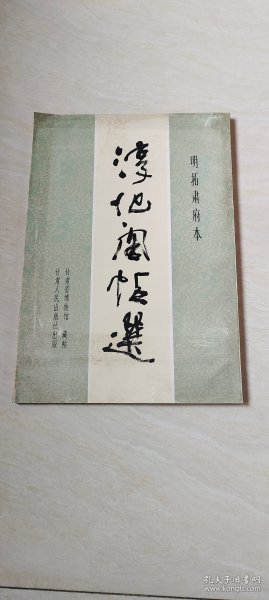 明拓肃府本
淳化阁帖選
甘肃省博物馆 藏帖
甘肃人民出版社出版
孔夫子旧书网
www.kongfz.com